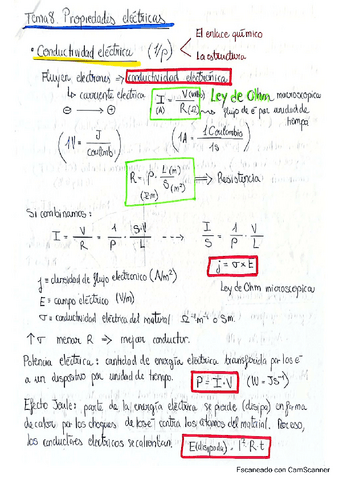 Tema 8. Propiedades eléctricas
El enlace químico
• Conductividad eléctrica (1/ρ)
La estructura
Fluyen electrones ⇒ conductividad electrónica
↳ corriente eléctrica
I = V (volts) / R (Ω)
(A)
Ley de Ohm macroscópica
flujo de e⁻ por unidad de tiempo
(1V = J / coulomb)
(1A = 1 Coulombio / 1s)
R = ρ · L (m) / S (m²)
(Ω m)
⇒ Resistencia
Si combinamos:
I = V/R = 1/ρ · S·V/L ---→ I/S = 1/ρ · V/L
j = σ × E
j = densidad de flujo electrónico (A/m²)
Ley de Ohm microscópica
E = campo eléctrico (V/m)
σ = conductividad eléctrica del material Ω⁻¹m⁻¹ o Sm.
↑σ menor R ⇒ mejor conductor.
Potencia eléctrica: cantidad de energía eléctrica transferida por los e⁻
a un dispositivo por unidad de tiempo. P = I · V (W = Js⁻¹)
Efecto Joule: parte de la energía eléctrica se pierde (disipa) en forma
de calor por los choques de los e⁻ contra los átomos del material. Por eso,
los conductores eléctricos se calientan. E(disipada) = I² R t
Escaneado con CamScanner